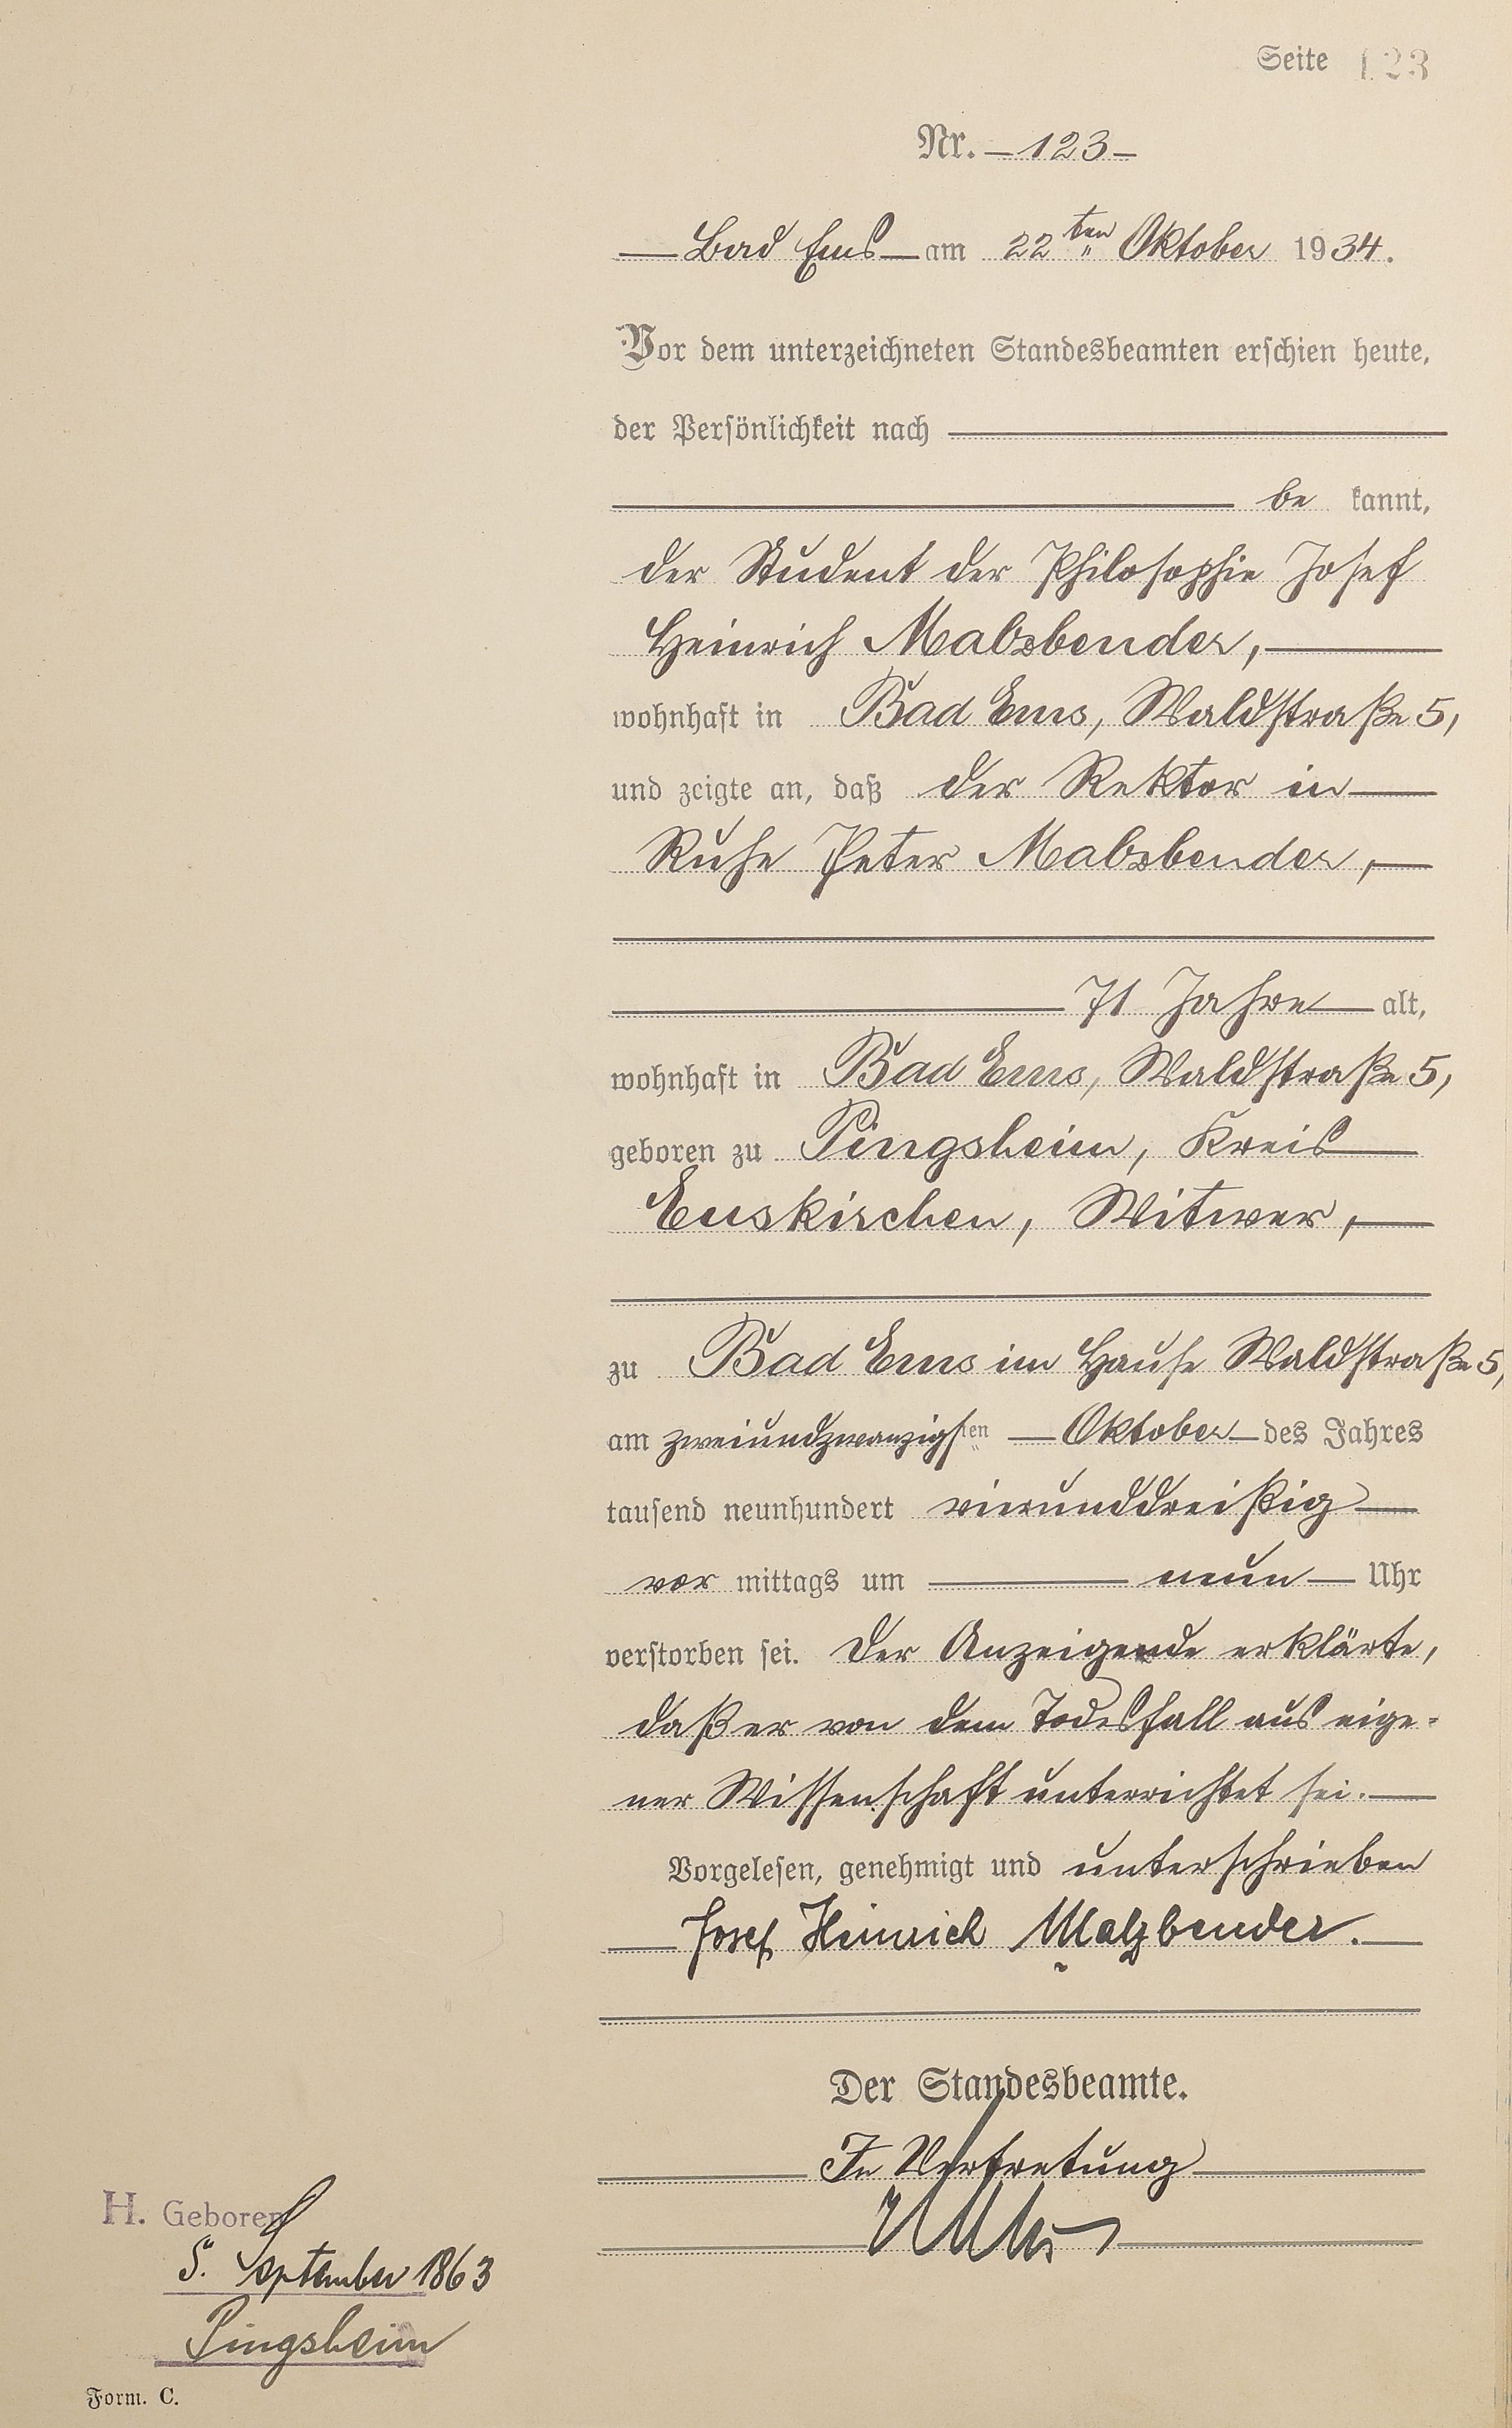 Seite 123
Nr. 123
Bad Ems am 22ten Oktober 1934.
Vor dem unterzeichneten Standesbeamten erschien heute,
der Persönlichkeit nach
be kannt,
der Student der Philosophie Josef
Heinrich Malzbender,
wohnhaft in Bad Ems, Waldstraße 5,
und zeigte an, daß der Rektor in
Ruhe Peter Malzbender,
71 Jahre alt,
wohnhaft in Bad Ems, Waldstraße 5,
geboren zu Pingsheim, Kreis
Euskirchen, Witwer,
zu Bad Ems im Hause Waldstraße 5,
am zweiundzwanzigsten Oktober des Jahres
tausend neunhundert vierunddreißig
vor mittags um neun Uhr
verstorben sei. Der Anzeigende erklärte,
daß er von dem Todesfall aus eige-
ner Wissenschaft unterrichtet sei.
Vorgelesen, genehmigt und unterschrieben
Josef Heinrich Malzbender.
Der Standesbeamte.
In Vertretung
H. Geboren
5. September 1863
Pingsheim
Form. C.